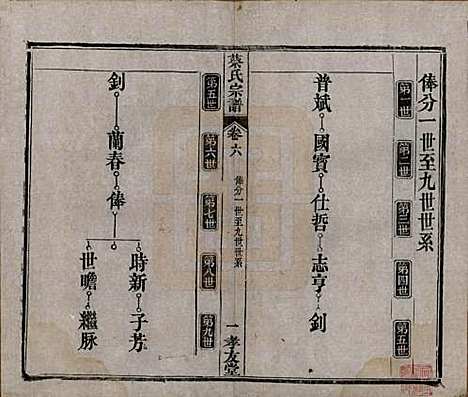 俸分一世至九世世系
第一世 第二世 第三世 第四世 第五世
普斌 國賓 仕哲 志亨 釗
葉氏宗譜 卷六 俸分一世至九世世系 一 孝友堂
第五世 第六世 第七世 第八世 第九世
釗 蘭春 俸 時新 子芳
世瞻 繼脉